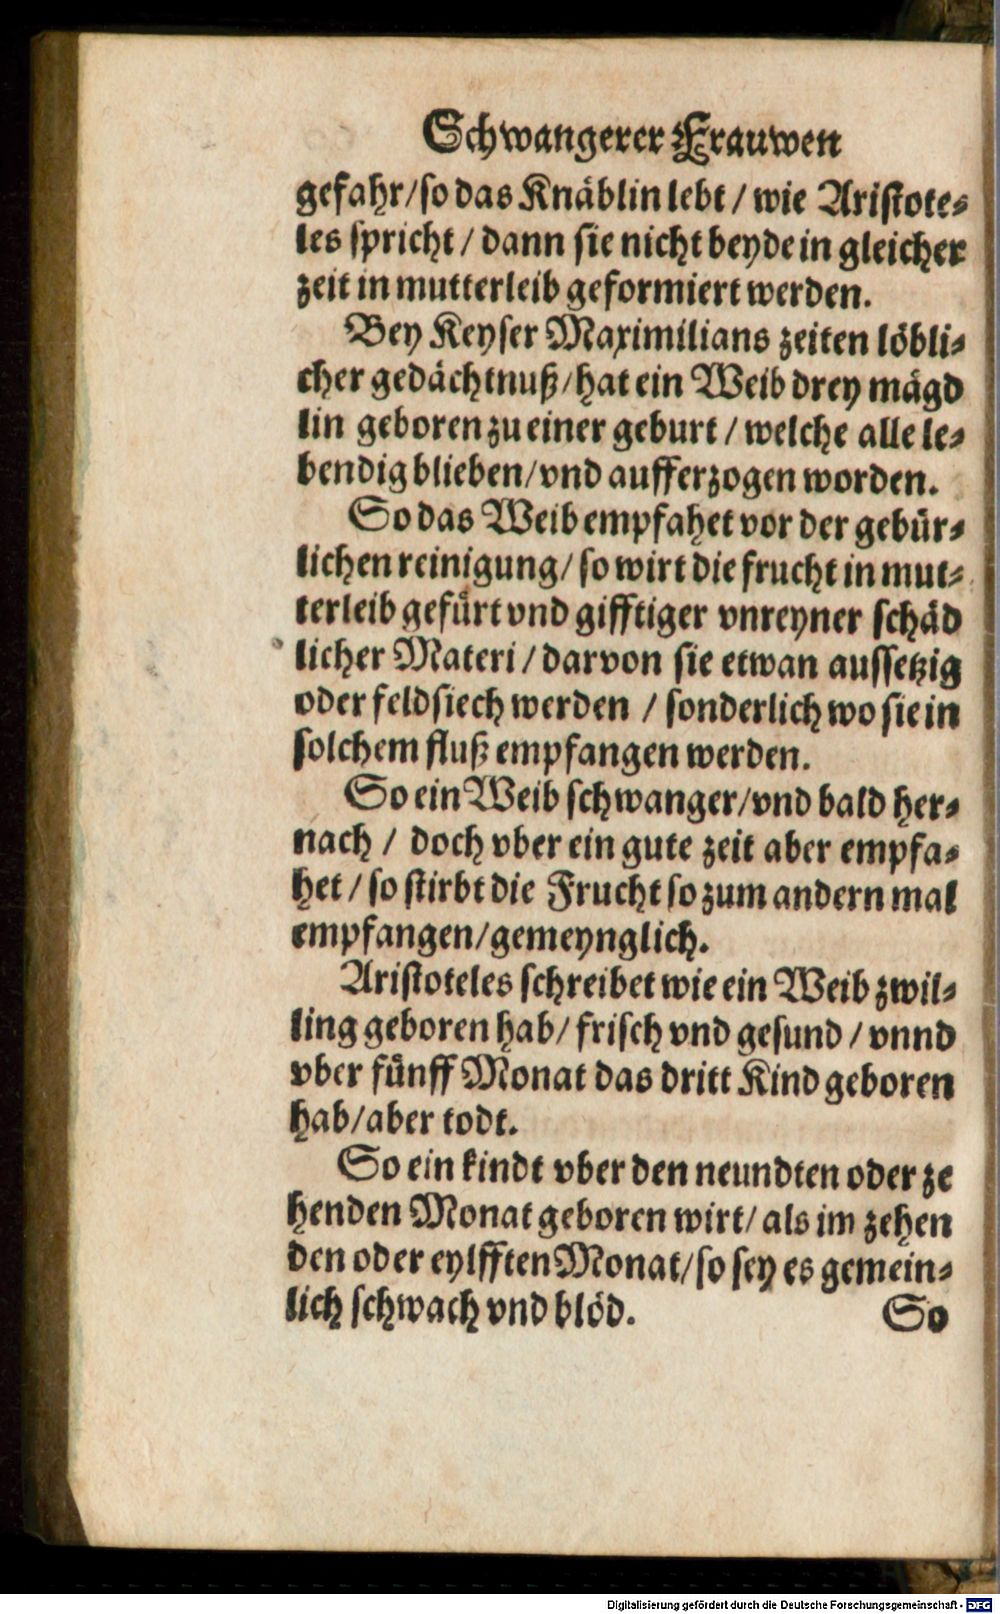 Schwangerer Frauwen
gefahr/so das Knäblin lebt / wie Aristote⸗
les spricht / dann sie nicht beyde in gleicher
zeit in mutterleib geformiert werden.
Bey Keyser Maximilians zeiten löbli⸗
cher gedächtnuß/hat ein Weib drey mägd
lin geboren zu einer geburt / welche alle le⸗
bendig blieben/vnd aufferzogen worden.
So das Weib empfahet vor der gebür⸗
lichen reinigung/ so wirt die frucht in mut⸗
terleib gefürt vnd gifftiger vnreyner schäd
licher Materi / darvon sie etwan aussetzig
oder feldsiech werden / sonderlich wo sie in
solchem fluß empfangen werden.
So ein Weib schwanger/vnd bald her⸗
nach / doch vber ein gute zeit aber empfa⸗
het / so stirbt die Frucht so zum andern mal
empfangen/gemeynglich.
Aristoteles schreibet wie ein Weib zwil⸗
ling geboren hab/ frisch vnd gesund / vnnd
vber fünff Monat das dritt Kind geboren
hab/aber todt.
So ein kindt vber den neundten oder ze
henden Monat geboren wirt/ als im zehen
den oder eylfften Monat/so sey es gemein⸗
lich schwach vnd blöd. So
Digitalisierung gefördert durch die Deutsche Forschungsgemeinschaft - DFG